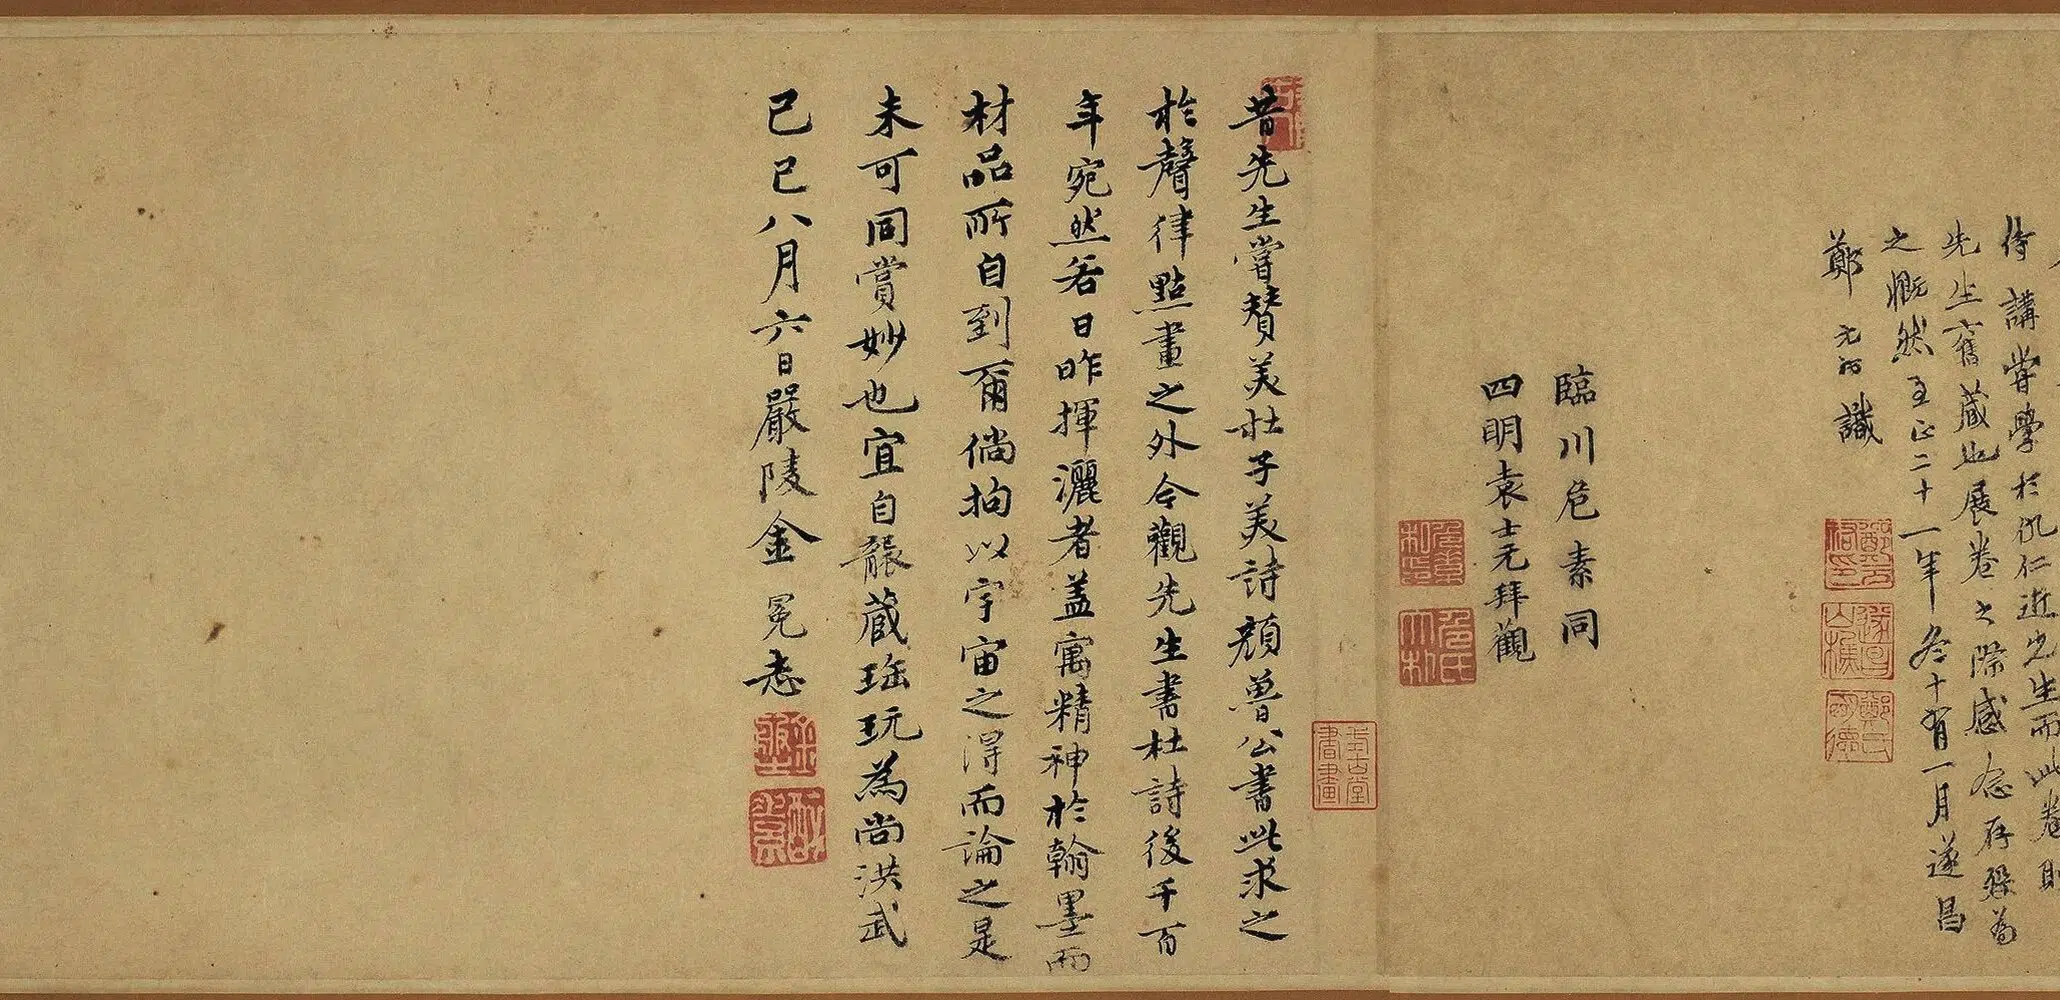 侍講嘗學於仇仁近先生而此卷則
先生舊藏也展卷之際感念存歿為
之慨然至正二十一年冬十有一月遂昌
鄭元祐識
臨川危素同
四明袁士元拜觀
昔先生嘗贊美杜子美詩顏魯公書此求之
於聲律點畫之外今觀先生書杜詩後千百
年宛然若日昨揮灑者蓋寓精神於翰墨而
材品所自到爾倘拘以宇宙之得而論之是
未可同賞妙也宜自韞藏珤玩為尚洪武
己巳八月六日嚴陵金冕志